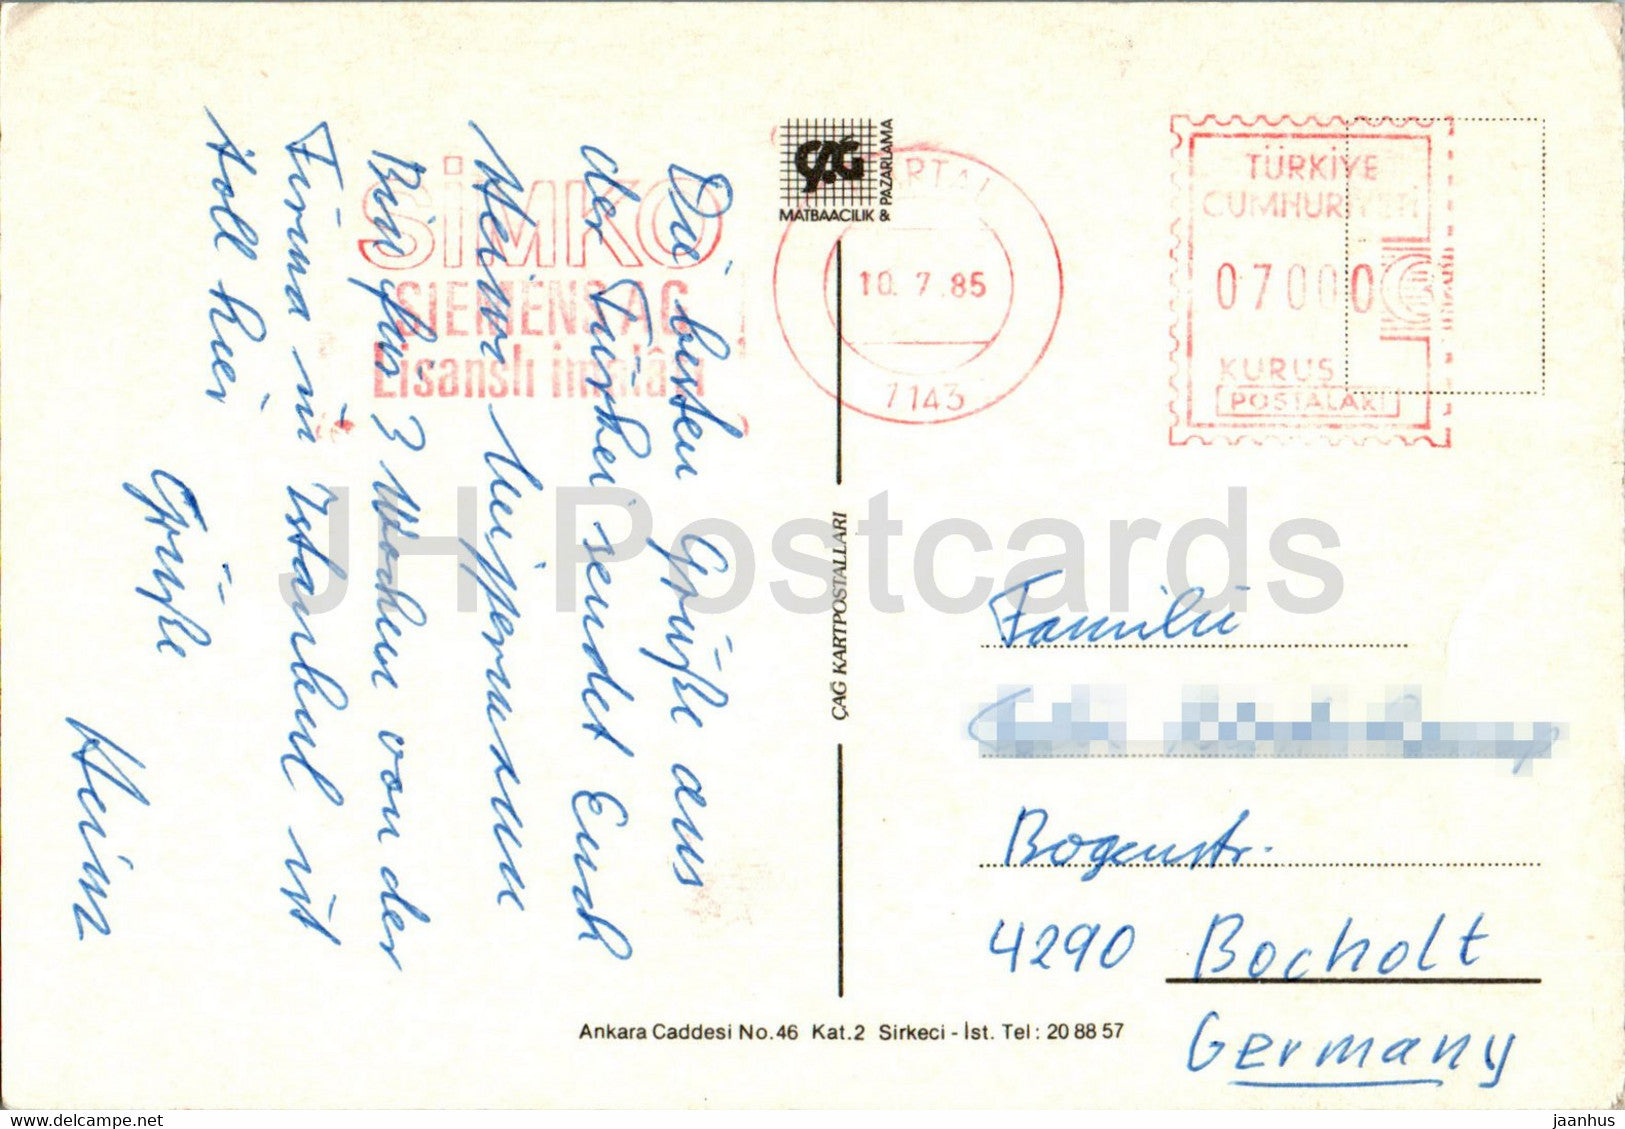 Die besten Grüße aus
der Türkei sendet Euch
Heinz
Bin für 3 Wochen von der
Firma in Istanbul ist
toll hier
Grüße
Heinz
SİMKO
SIEMENS AG
Lisanslı imalâtı
ÇAĞ
MATBAACILIK &
PAZARLAMA
KARTAL
10.7.85
7143
TÜRKİYE
CUMHURİYETİ
07000
KURUŞ
POSTALARI
ÇAĞ KARTPOSTALLARI
JH Postcards
Familie
Bogenstr.
4290 Bocholt
Germany
Ankara Caddesi No.46 Kat.2 Sirkeci - İst. Tel: 20 88 57
www.delcampe.net
jaanhus